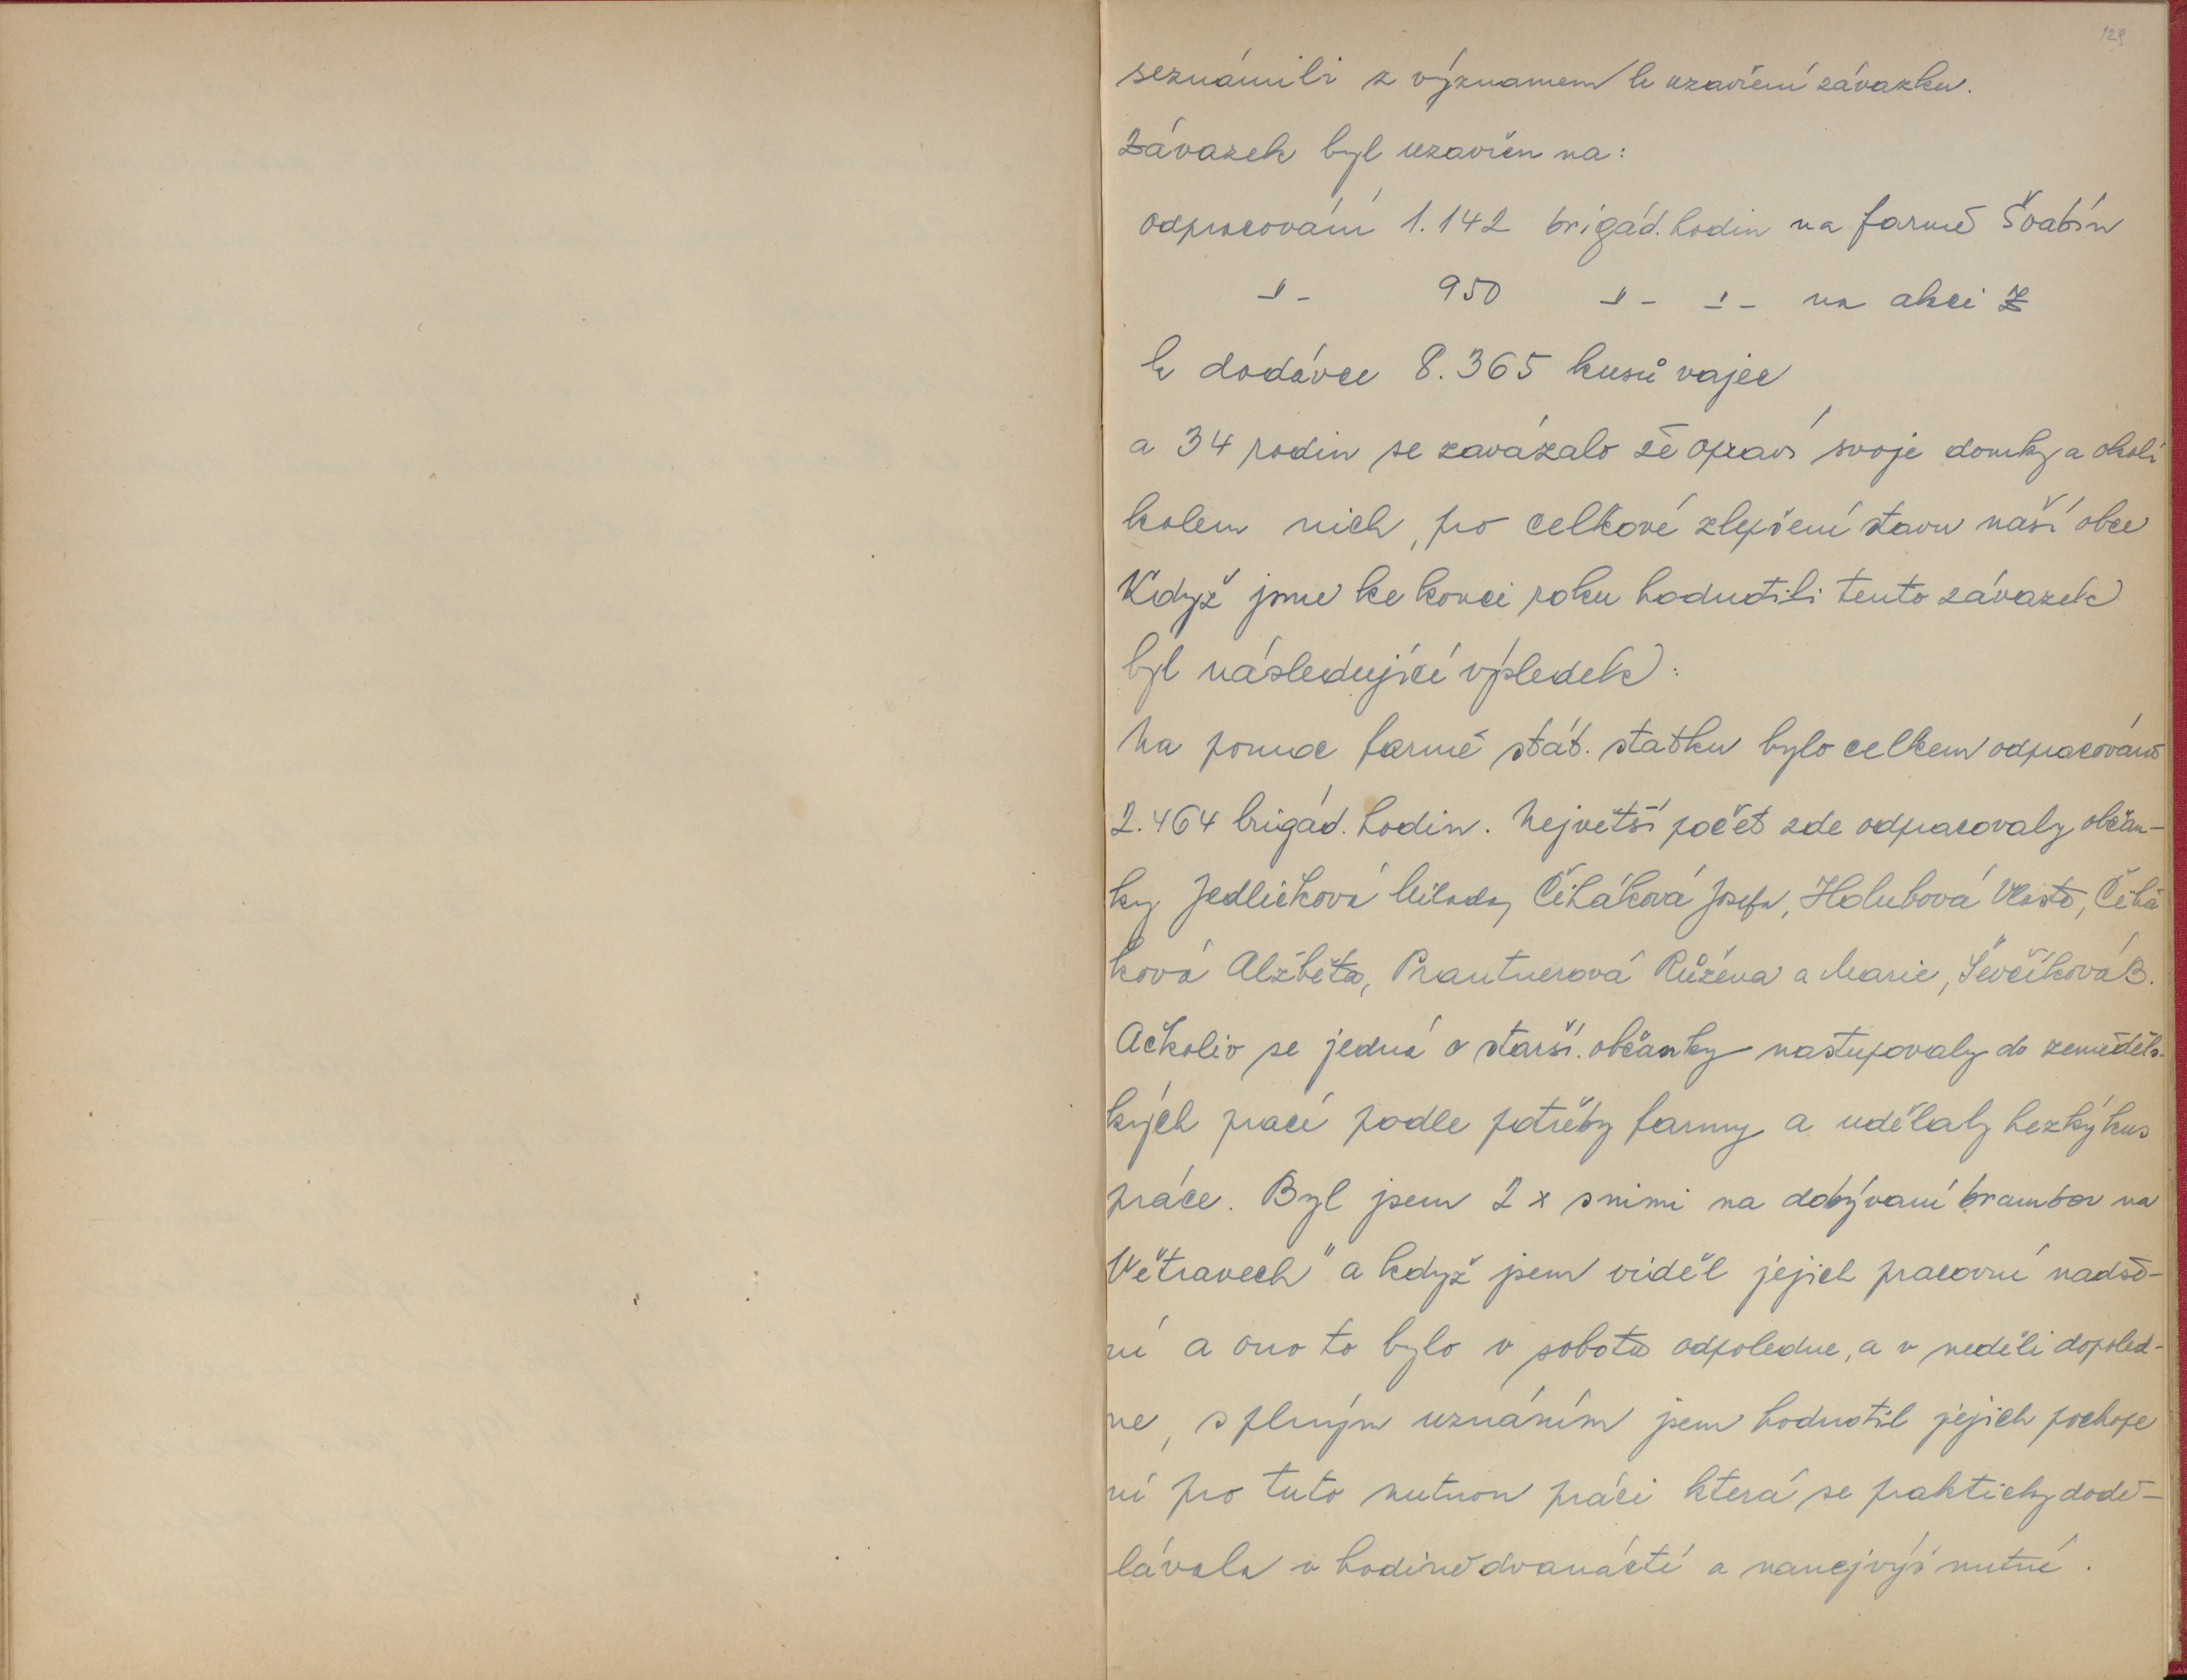 129
seznámili z významem k uzavření závazku.
Závazek byl uzavřen na:
odpracování 1.142 brigád. hodin na farmě Švabín
-"- 950 -"- -"- na akci Z
k dodávce 8.365 kusů vajec
a 34 rodin se zavázalo že opraví svoje domky a okolí
kolem nich, pro celkové zlepšení stavu naší obce
Když jsme ke konci roku hodnotili tento závazek
byl následující výsledek:
Na pomoc farmě stát. statku bylo celkem odpracováno
2.464 brigád. hodin. Největší počet zde odpracovaly občan-
ky Jedličková Milada, Čiháková Josefa, Holubová Vlasta, Čihá
ková Alžběta, Prantnerová Růžena a Marie, Ševčíková B.
Ačkoliv se jedná o starší občanky nastupovaly do zeměděls-
kých prací podle potřeby farmy a udělaly hezký kus
práce. Byl jsem 2 x snimi na dobývaní brambor na
Větravech" a když jsem viděl jejich pracovní nadše-
ní a ono to bylo v sobotu odpoledne, a v neděli dopoled-
ne, s plným uznáním jsem hodnotil jejich pochope
ní pro tuto nutnou práci která se prakticky dodě-
lávala v hodině dvanácté a nanejvýš nutné.